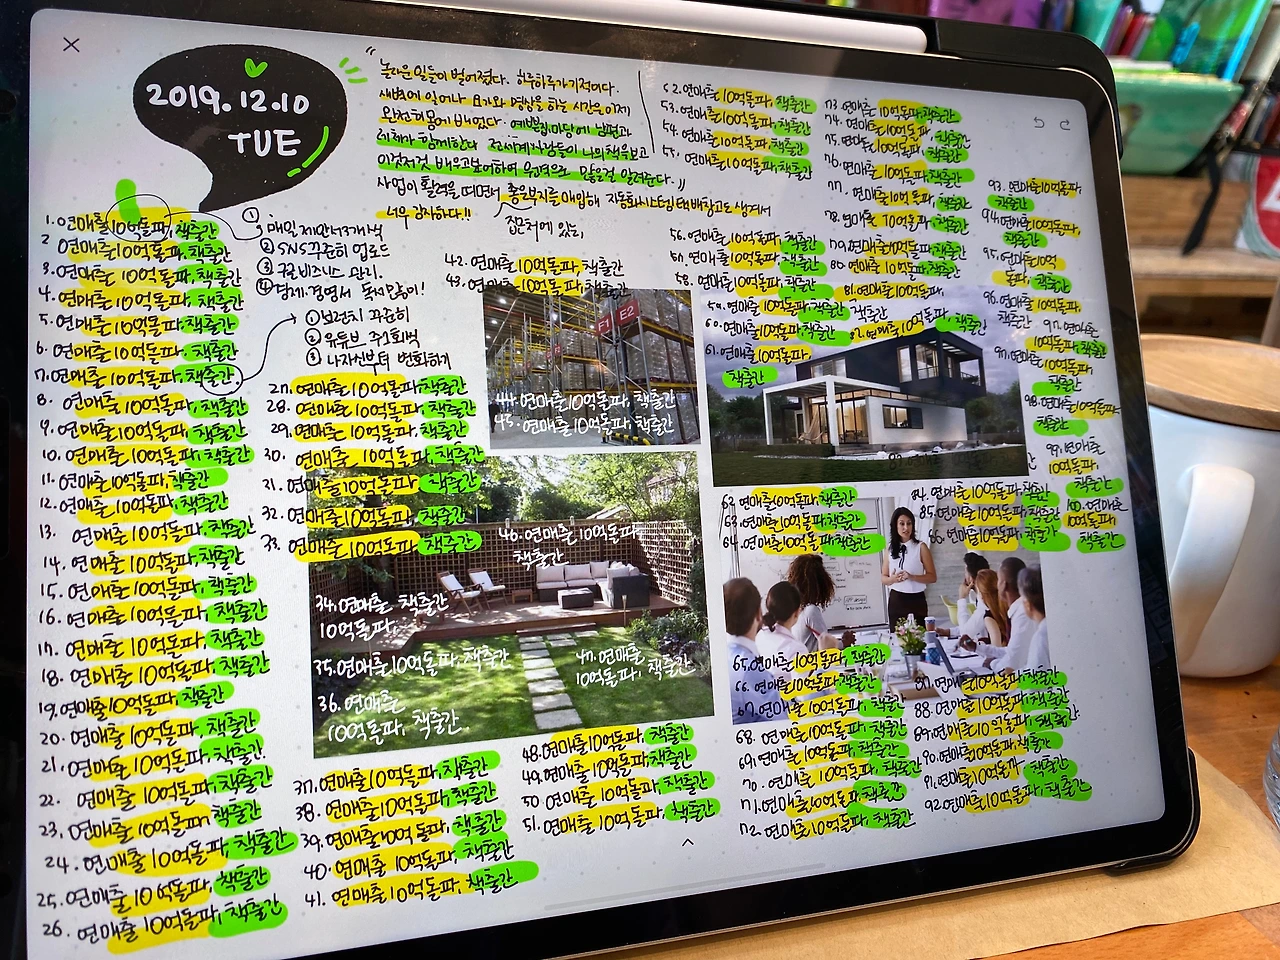 2019.12.10
TUE
" 놀라운 일들이 벌어졌다. 하루하루가 기적이다.
새벽에 일어나 요가와 명상을 하는 시간은 이제
완전히 몸에 배었다. 예쁜집 마당에 남편과
함께한다. 전세계사람들이 나의 책을 보고
이것저것 배우고 보여하여 우편으로 많은걸 알려준다. "
사업이 활력을 띠면서 좋은부지를 매입해 자동화시스템 택배창고도 생겨서
너무 감사하다!!
집근처에 있는,
1. 연매출 10억돌파, 책출간
2 연매출 10억돌파, 책출간
3. 연매출 10억돌파, 책출간
4. 연매출 10억돌파, 책출간
5. 연매출 10억돌파, 책출간
6. 연매출 10억돌파, 책출간
7. 연매출 10억돌파, 책출간
8. 연매출 10억돌파, 책출간
9. 연매출 10억돌파, 책출간
10. 연매출 10억돌파, 책출간
11. 연매출 10억돌파, 책출간
12. 연매출 10억돌파, 책출간
13. 연매출 10억돌파, 책출간
14. 연매출 10억돌파, 책출간
15. 연매출 10억돌파, 책출간
16. 연매출 10억돌파, 책출간
17. 연매출 10억돌파, 책출간
18. 연매출 10억돌파, 책출간
19. 연매출 10억돌파, 책출간
20. 연매출 10억돌파, 책출간
21. 연매출 10억돌파, 책출간
22. 연매출 10억돌파, 책출간
23. 연매출 10억돌파, 책출간
24. 연매출 10억돌파, 책출간
25. 연매출 10억돌파, 책출간
26. 연매출 10억돌파, 책출간
① 매일 제안서 3개씩
② SNS 꾸준히 업로드
③ 구글비즈니스 관리.
④ 경제.경영서 독서 많이!
① 보현치 꾸준히
② 유튜브 주1회씩
③ 나자신부터 변화하게
27. 연매출 10억돌파, 책출간
28. 연매출 10억돌파, 책출간
29. 연매출 10억돌파, 책출간
30. 연매출 10억돌파, 책출간
31. 연매출 10억돌파, 책출간
32. 연매출 10억돌파, 책출간
33. 연매출 10억돌파, 책출간
34. 연매출 책출간
10억돌파,
35. 연매출 10억돌파, 책출간
36. 연매출
10억돌파, 책출간
37. 연매출 10억돌파, 책출간
38. 연매출 10억돌파, 책출간
39. 연매출 10억돌파, 책출간
40. 연매출 10억돌파, 책출간
41. 연매출 10억돌파, 책출간
42. 연매출 10억돌파, 책출간
43. 연매출 10억돌파, 책출간
F1 E2
44. 연매출 10억돌파, 책출간
45. 연매출 10억돌파, 책출간
46. 연매출 10억돌파,
책출간
47. 연매출
10억돌파, 책출간
48. 연매출 10억돌파, 책출간
49. 연매출 10억돌파, 책출간
50. 연매출 10억돌파, 책출간
51. 연매출 10억돌파, 책출간
52. 연매출 10억돌파, 책출간
53. 연매출 10억돌파, 책출간
54. 연매출 10억돌파, 책출간
55. 연매출 10억돌파, 책출간
56. 연매출 10억돌파, 책출간
57. 연매출 10억돌파, 책출간
58. 연매출 10억돌파, 책출간
59. 연매출 10억돌파, 책출간
60. 연매출 10억돌파, 책출간
61. 연매출 10억돌파,
책출간
62. 연매출 10억돌파, 책출간
63. 연매출 10억돌파, 책출간
64. 연매출 10억돌파, 책출간
65. 연매출 10억돌파, 책출간
66. 연매출 10억돌파, 책출간
67. 연매출 10억돌파, 책출간
68. 연매출 10억돌파, 책출간
69. 연매출 10억돌파, 책출간
70. 연매출 10억돌파, 책출간
71. 연매출 10억돌파, 책출간
72. 연매출 10억돌파, 책출간
73. 연매출 10억돌파, 책출간
74. 연매출 10억돌파, 책출간
75. 연매출 10억돌파, 책출간
76. 연매출 10억돌파, 책출간
77. 연매출 10억돌파, 책출간
78. 연매출 10억돌파, 책출간
79. 연매출 10억돌파, 책출간
80. 연매출 10억돌파, 책출간
81. 연매출 10억돌파,
책출간
82. 연매출 10억돌파, 책출간
84. 연매출 10억돌파, 책출간
85. 연매출 10억돌파, 책출간
86. 연매출 10억돌파, 책출간
87. 연매출 10억돌파, 책출간
88. 연매출 10억돌파, 책출간
89. 연매출 10억돌파, 책출간
90. 연매출 10억돌파, 책출간
91. 연매출 10억돌파, 책출간
92. 연매출 10억돌파, 책출간
93. 연매출 10억돌파,
책출간
94. 연매출 10억돌파,
책출간
95. 연매출 10억
돌파, 책출간
96. 연매출 10억돌파,
책출간
97. 연매출
10억돌파, 책출간
97. 연매출 10억돌파,
책출간
98. 연매출 10억돌파,
책출간
99. 연매출
10억돌파,
책출간
100. 연매출
10억돌파,
책출간